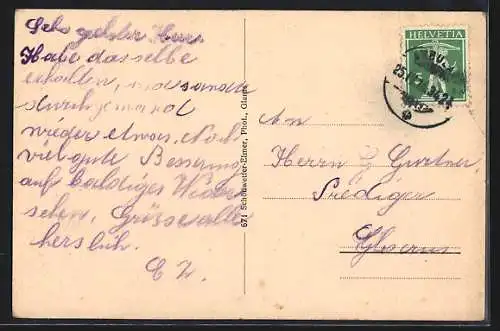 Sehr geehrter Herr
Habe dasselbe
erhalten, und sandte
durch jemand
wieder etwas. Noch
viel gute Besserung
auf baldiges Wieder
sehen. Grüsse alle
herzlich.
E Z.
671 Schönwetter-Elmer, Phot., Glarus
HELVETIA
An
Herrn Gurtner
Prediger
Glarus